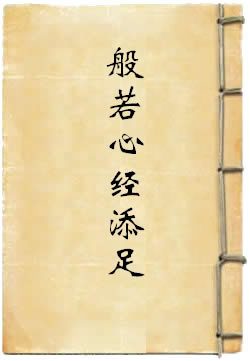 般若心经添足